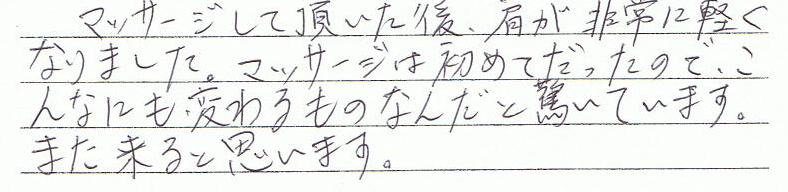 マッサージして頂いた後、肩が非常に軽く
なりました。マッサージは初めてだったので、こ
んなにも変わるものなんだと驚いています。
また来ると思います。